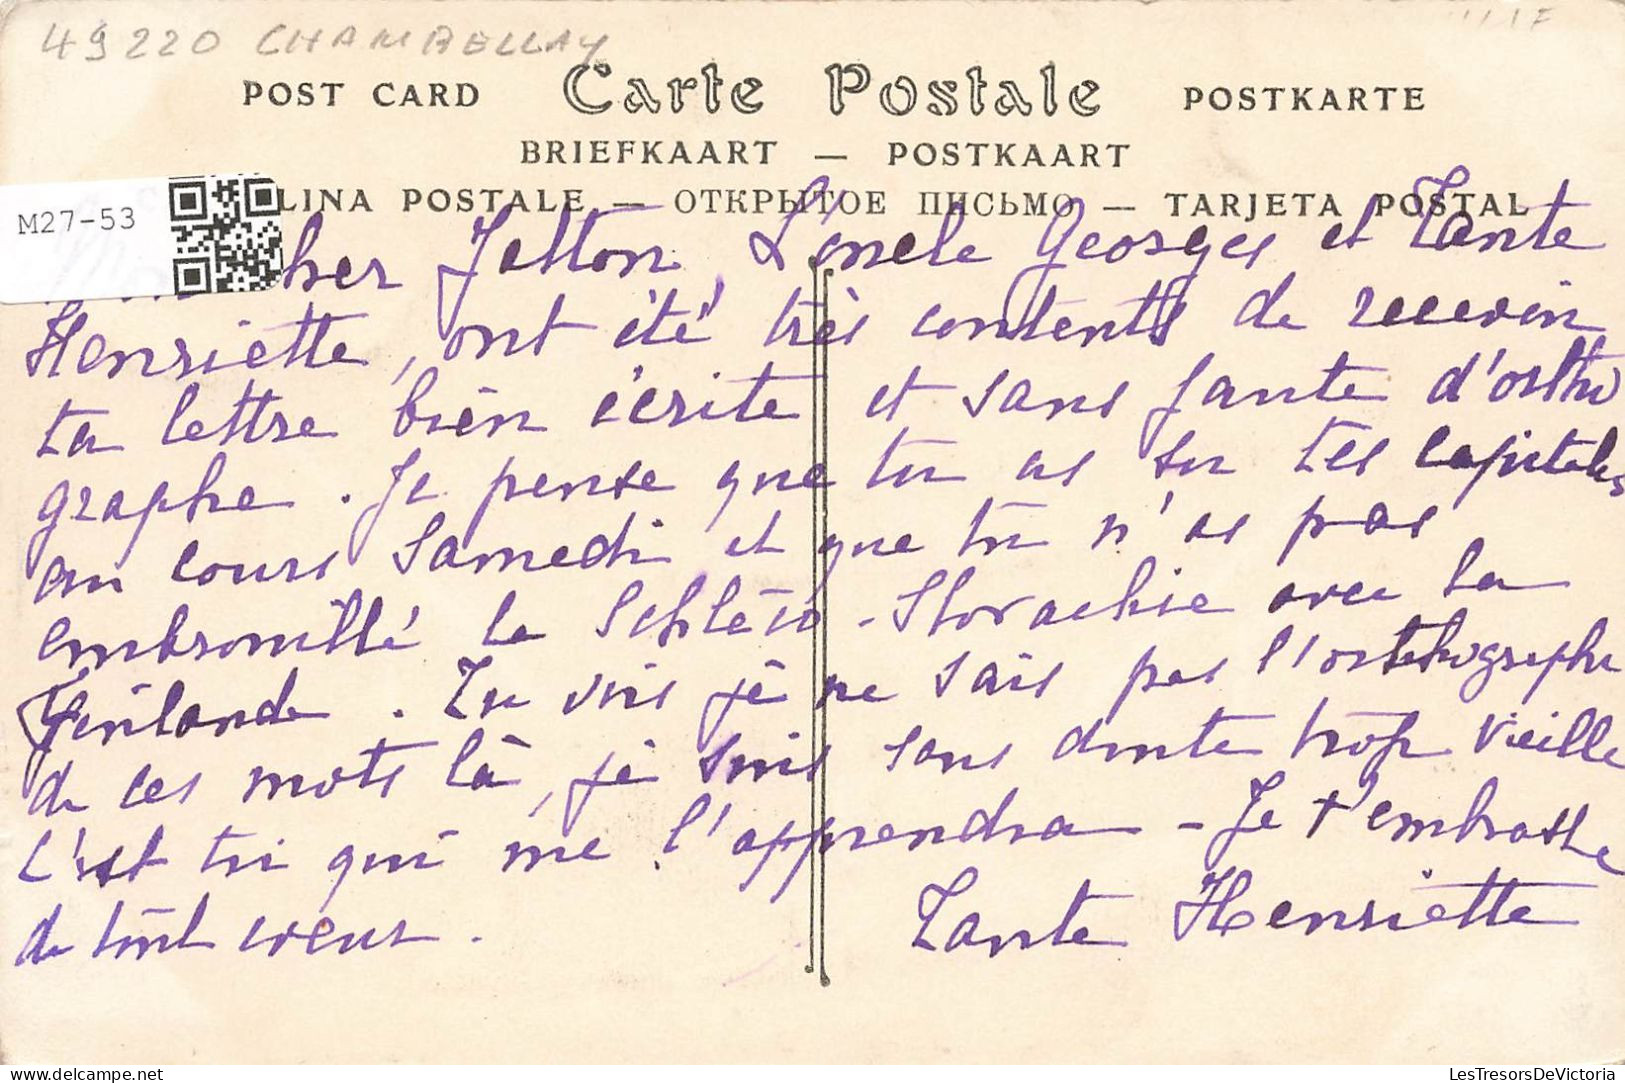 49220 CHAMBELLAY
POST CARD Carte Postale POSTKARTE
BRIEFKAART — POSTKAART
LINA POSTALE — ОТКРЫТОЕ ПИСЬМО — TARJETA POSTAL
M27-53
cher Jetton, L'oncle Georges et Tante
Henriette, ont été très contents de recevoir
ta lettre bien écrite et sans faute d'ortho
graphe. Je pense que tu as su tes capitales
au cours Samedi et que tu n'as pas
embrouillé la Schléco-Slovachie avec la
Finlande. Tu vois je ne sais pas l'orthographe
de ces mots là, je suis sans doute trop vieille
c'est toi qui me l'apprendra - Je t'embrasse
de tout coeur. Tante Henriette
LesTresorsDeVictoria